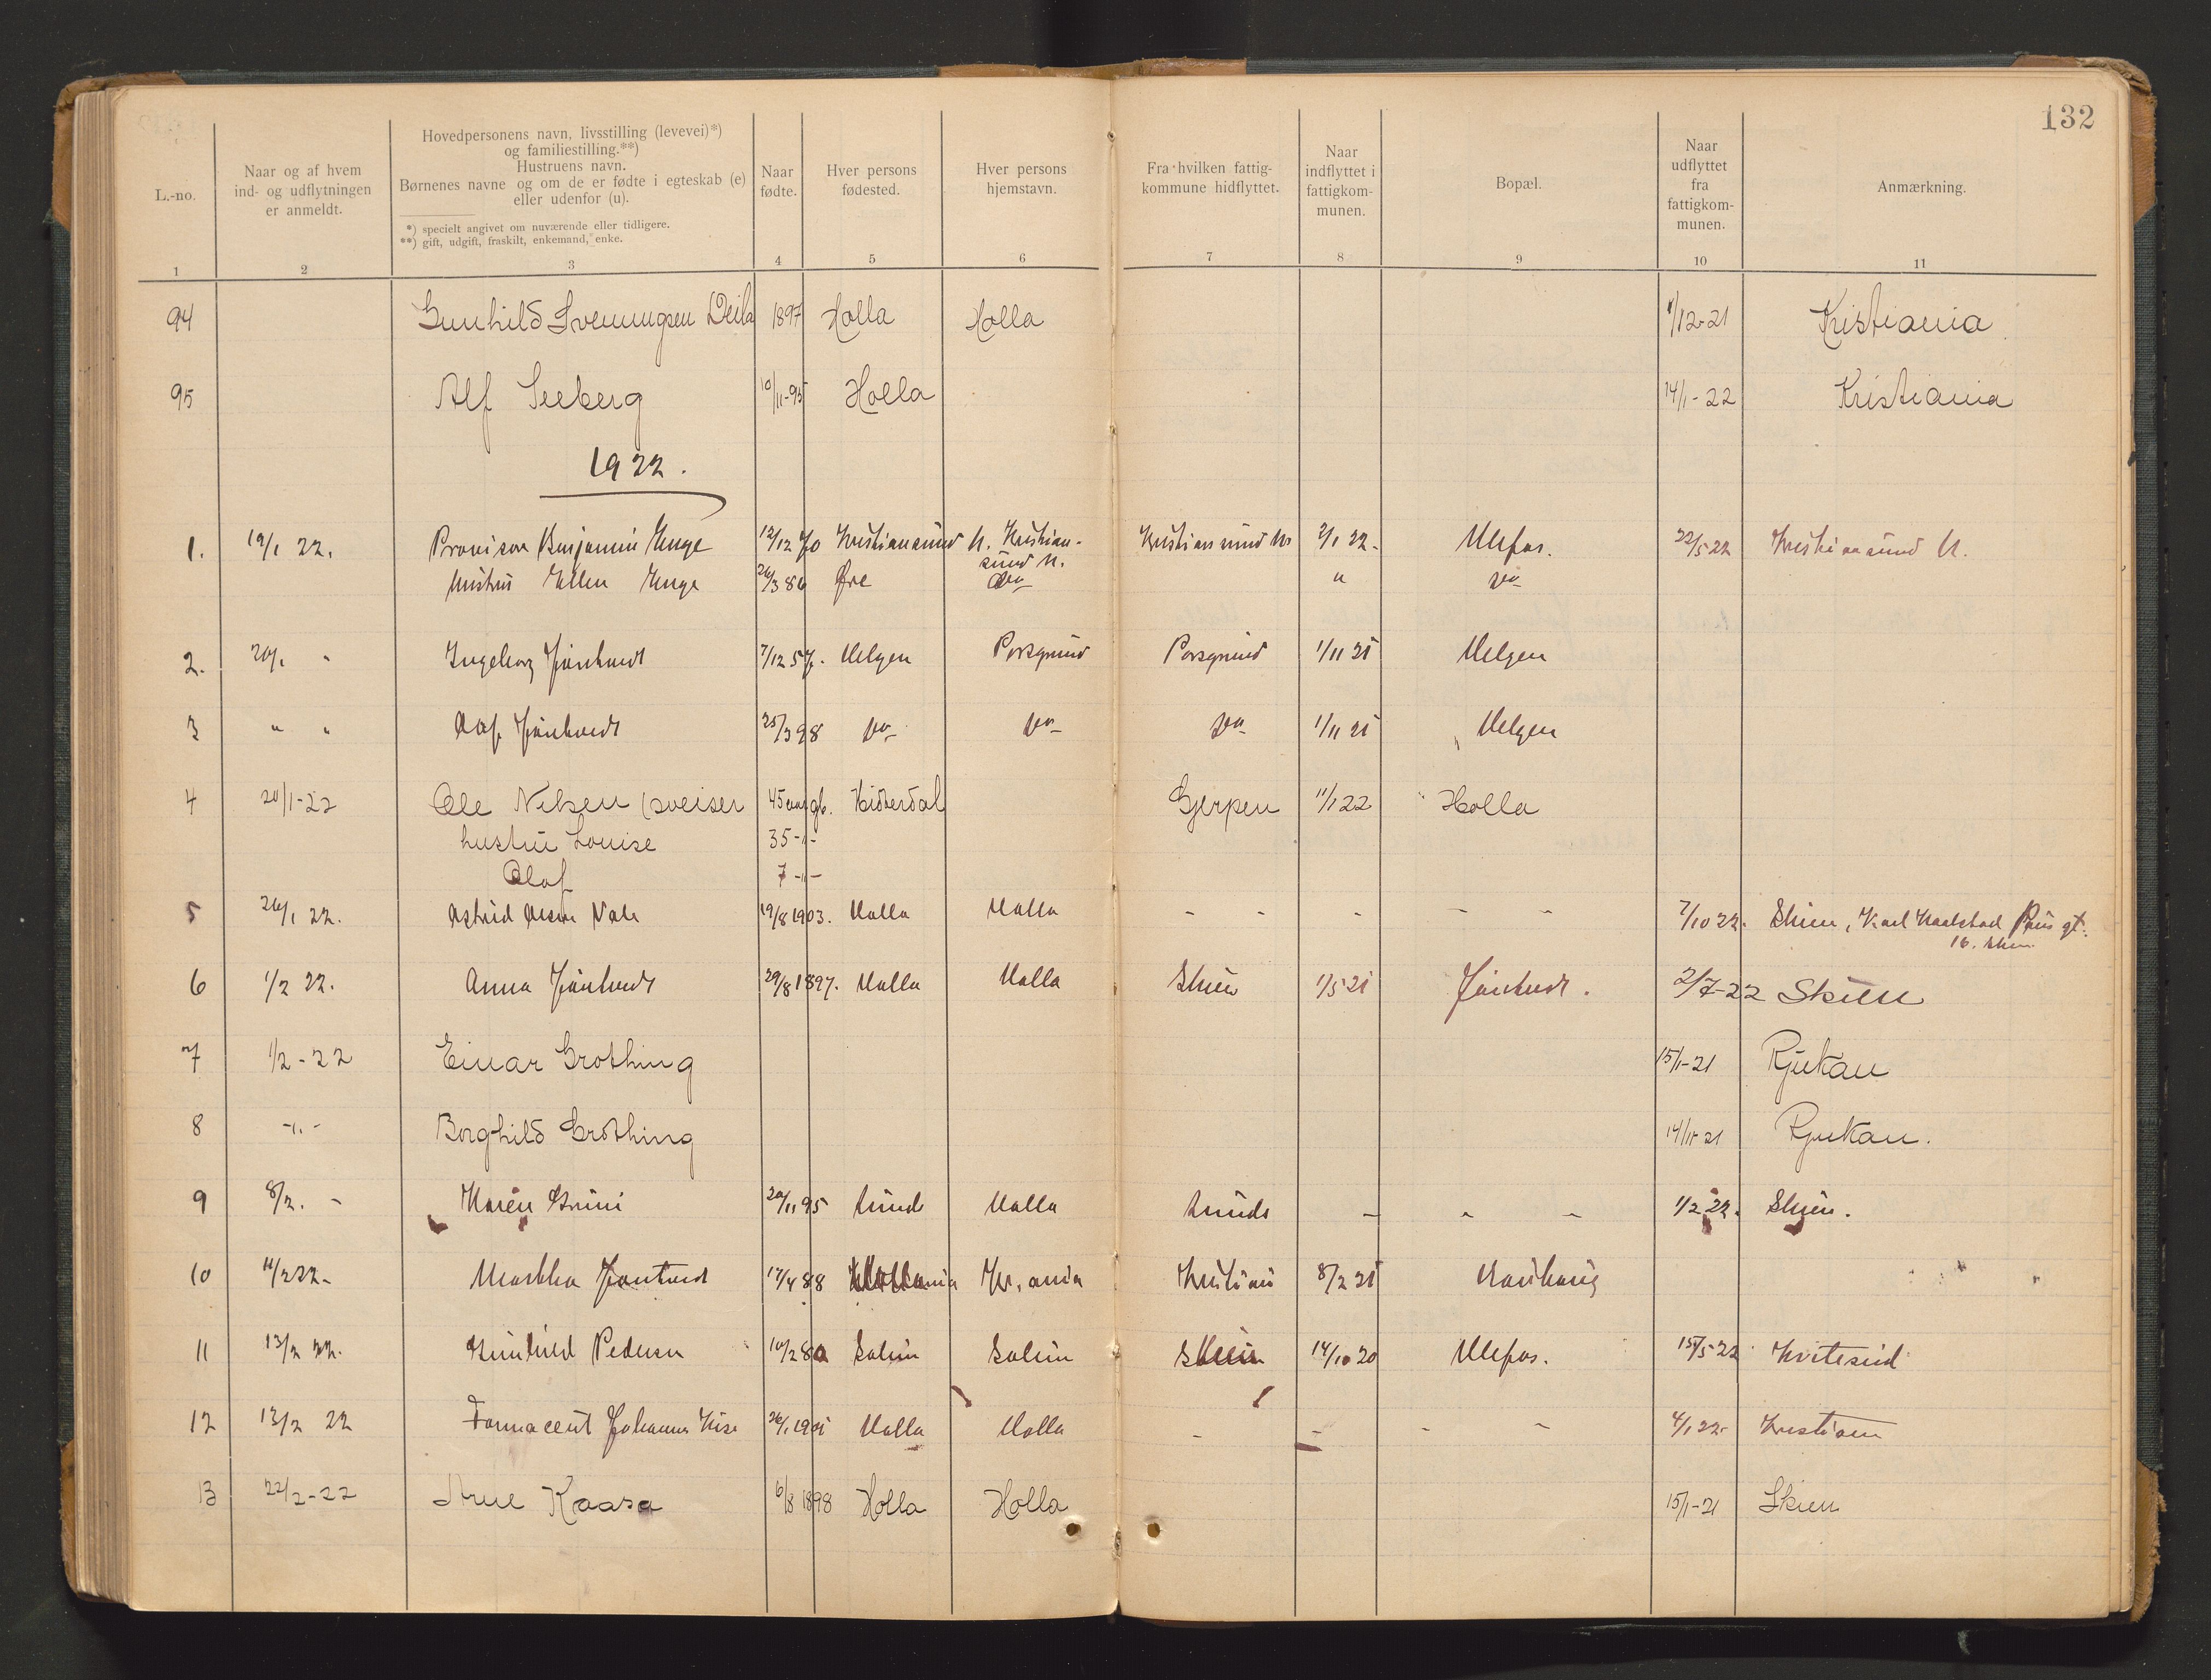 132
L.-no.
Naar og af hvem
ind- og udflytningen
er anmeldt.
Hovedpersonens navn, livsstilling (levevei)*)
og familiestilling.**)
Hustruens navn.
Børnenes navne og om de er fødte i egteskab (e)
eller udenfor (u).
*) specielt angivet om nuværende eller tidligere.
**) gift, udgift, fraskilt, enkemand, enke.
Naar
fødte.
Hver persons
fødested.
Hver persons
hjemstavn.
Fra hvilken fattig-
kommune hidflyttet.
Naar
indflyttet i
fattigkom-
munen.
Bopæl.
Naar
udflyttet
fra
fattigkom-
munen.
Anmærkning.
1 2 3 4 5 6 7 8 9 10 11
94 Gunhild Svenungsen Deila 1897 Holla Holla /12-21 Kristiania
95 Alf Seeberg 10/11-95 Holla 14/1-22 Kristiania
1922.
1. 19/1 22. Provisor Benjamin Unge 12/12 70 Kristiansund N. Kristian- Kristiansund N 2/1 22. Ulefos. 22/5 22 Kristiansund N.
sund N.
hustru Ellen Unge 26/3 86 Øre do " do
2. 20/1 " Ingeborg Jønholdt 7/12 57. Helgen Porsgrund Porsgrund 1/11 21 Helgen
3 " " Olaf Jønholdt 25/3 98 do do do 1/11 21 Helgen
4 20/1-22 Ole Nilsen (sveiser 45 aar gl. Hidterdal Gjerpen 11/1 22 Holla
hustru Louise 35 -"-
Olaf 7 -"-
5 26/1 22. Astrid Olsen 19/8 1903. Holla Holla - - - - - 7/10 22. Skien, Karl
16. Skien
6 1/2 22. Anna Jønholdt 29/8 1897. Holla Holla Skien 1/5 21 Jønholdt. 2/7-22 Skien
7 1/2-22 Einar Grothing 15/1-21 Rjukan
8 -"- Borghild Grothing 14/11 21 Rjukan.
9 8/2. - Maren Gruni 20/11 95 Lunde Holla Lunde - - - 1/2 22. Skien.
10 11/2 22- Martha Jønholdt 17/4 88 Kr.ania Kristiani 8/2 21
11 13/2 22. Gunhild Pedersen 10/2 80 Solum Solum Skien 14/10 20 Ulefos. 15/5 22 Kviteseid
12 13/2 22 Farmaceut Johannes 26/1 1901 Holla Holla - - - - 4/1 22- Kristiania
13 22/2-22 Arne Kaasa 6/8 1898 Holla Holla 15/1-21 Skien